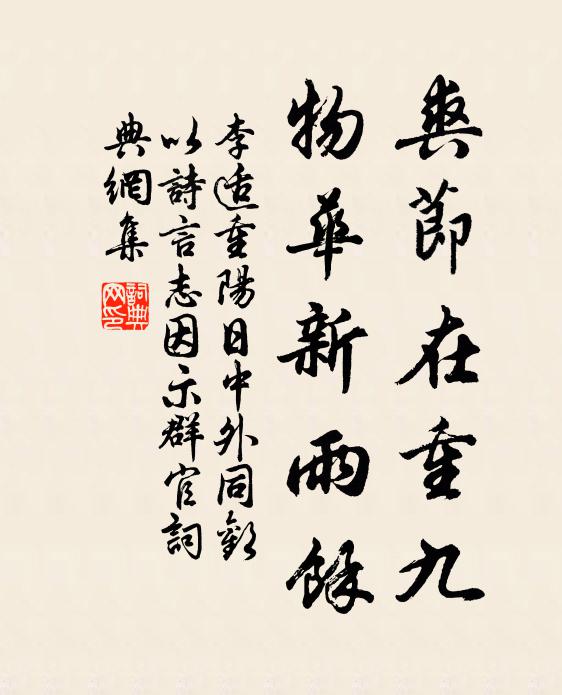 爽節在重九
物華新雨餘
李适重陽日中外同歡
以詩言志因示群官詞
典網集
詞典
网印